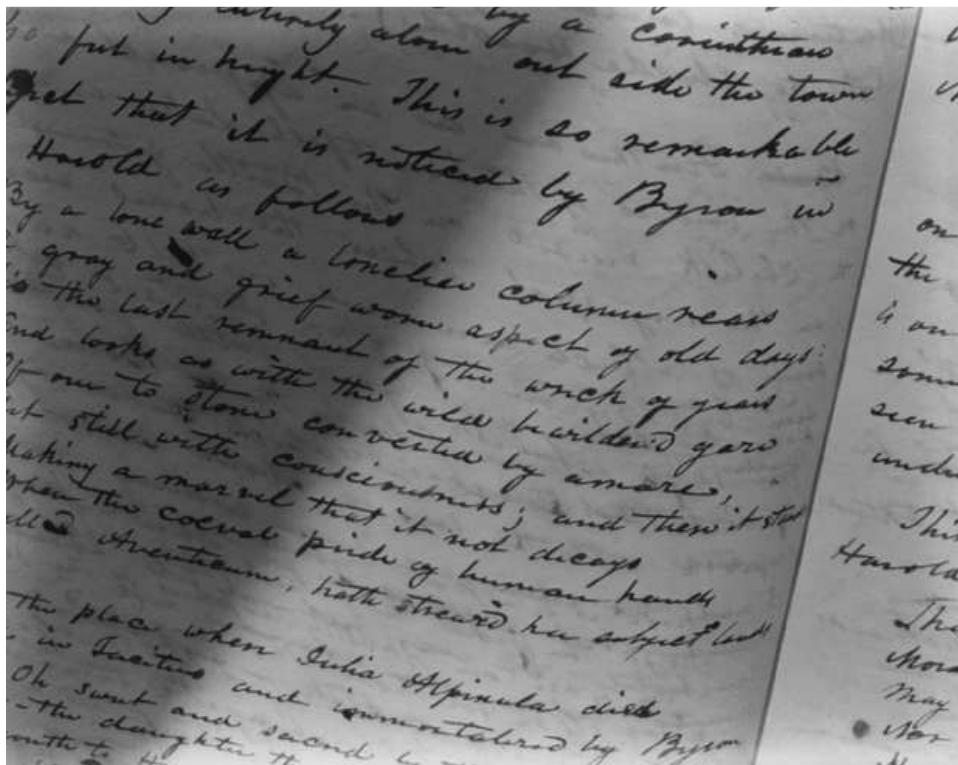 by a corinthian
entirely alone out side the town
put in hight. This is so remarkable
that it is noticed by Byron in
Harold as follows
By a lone wall a lonelier column rears
gray and grief worn aspect of old days:
the last remnant of the wreck of years
and looks as with the wild bewilder'd gaze
of one to stone converted by amaze,
still with consciousness; and there it stands
Making a marvel that it not decays
When the coeval pride of human hands
Aventicum, hath strew'd her subject lands
the place where Julia Alpinula died
in Tacitus and immortalized by Byron
Oh sweet and sacred be the
the daughter th
on
the
is an
some
seen
This
Harold
The
May
Nor